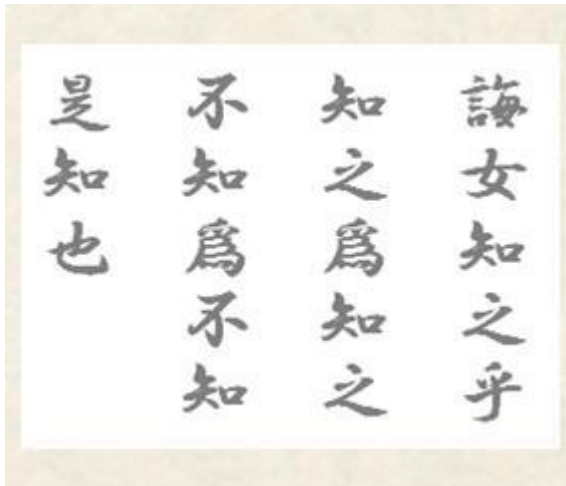 誨女知之乎
知之爲知之
不知爲不知
是知也